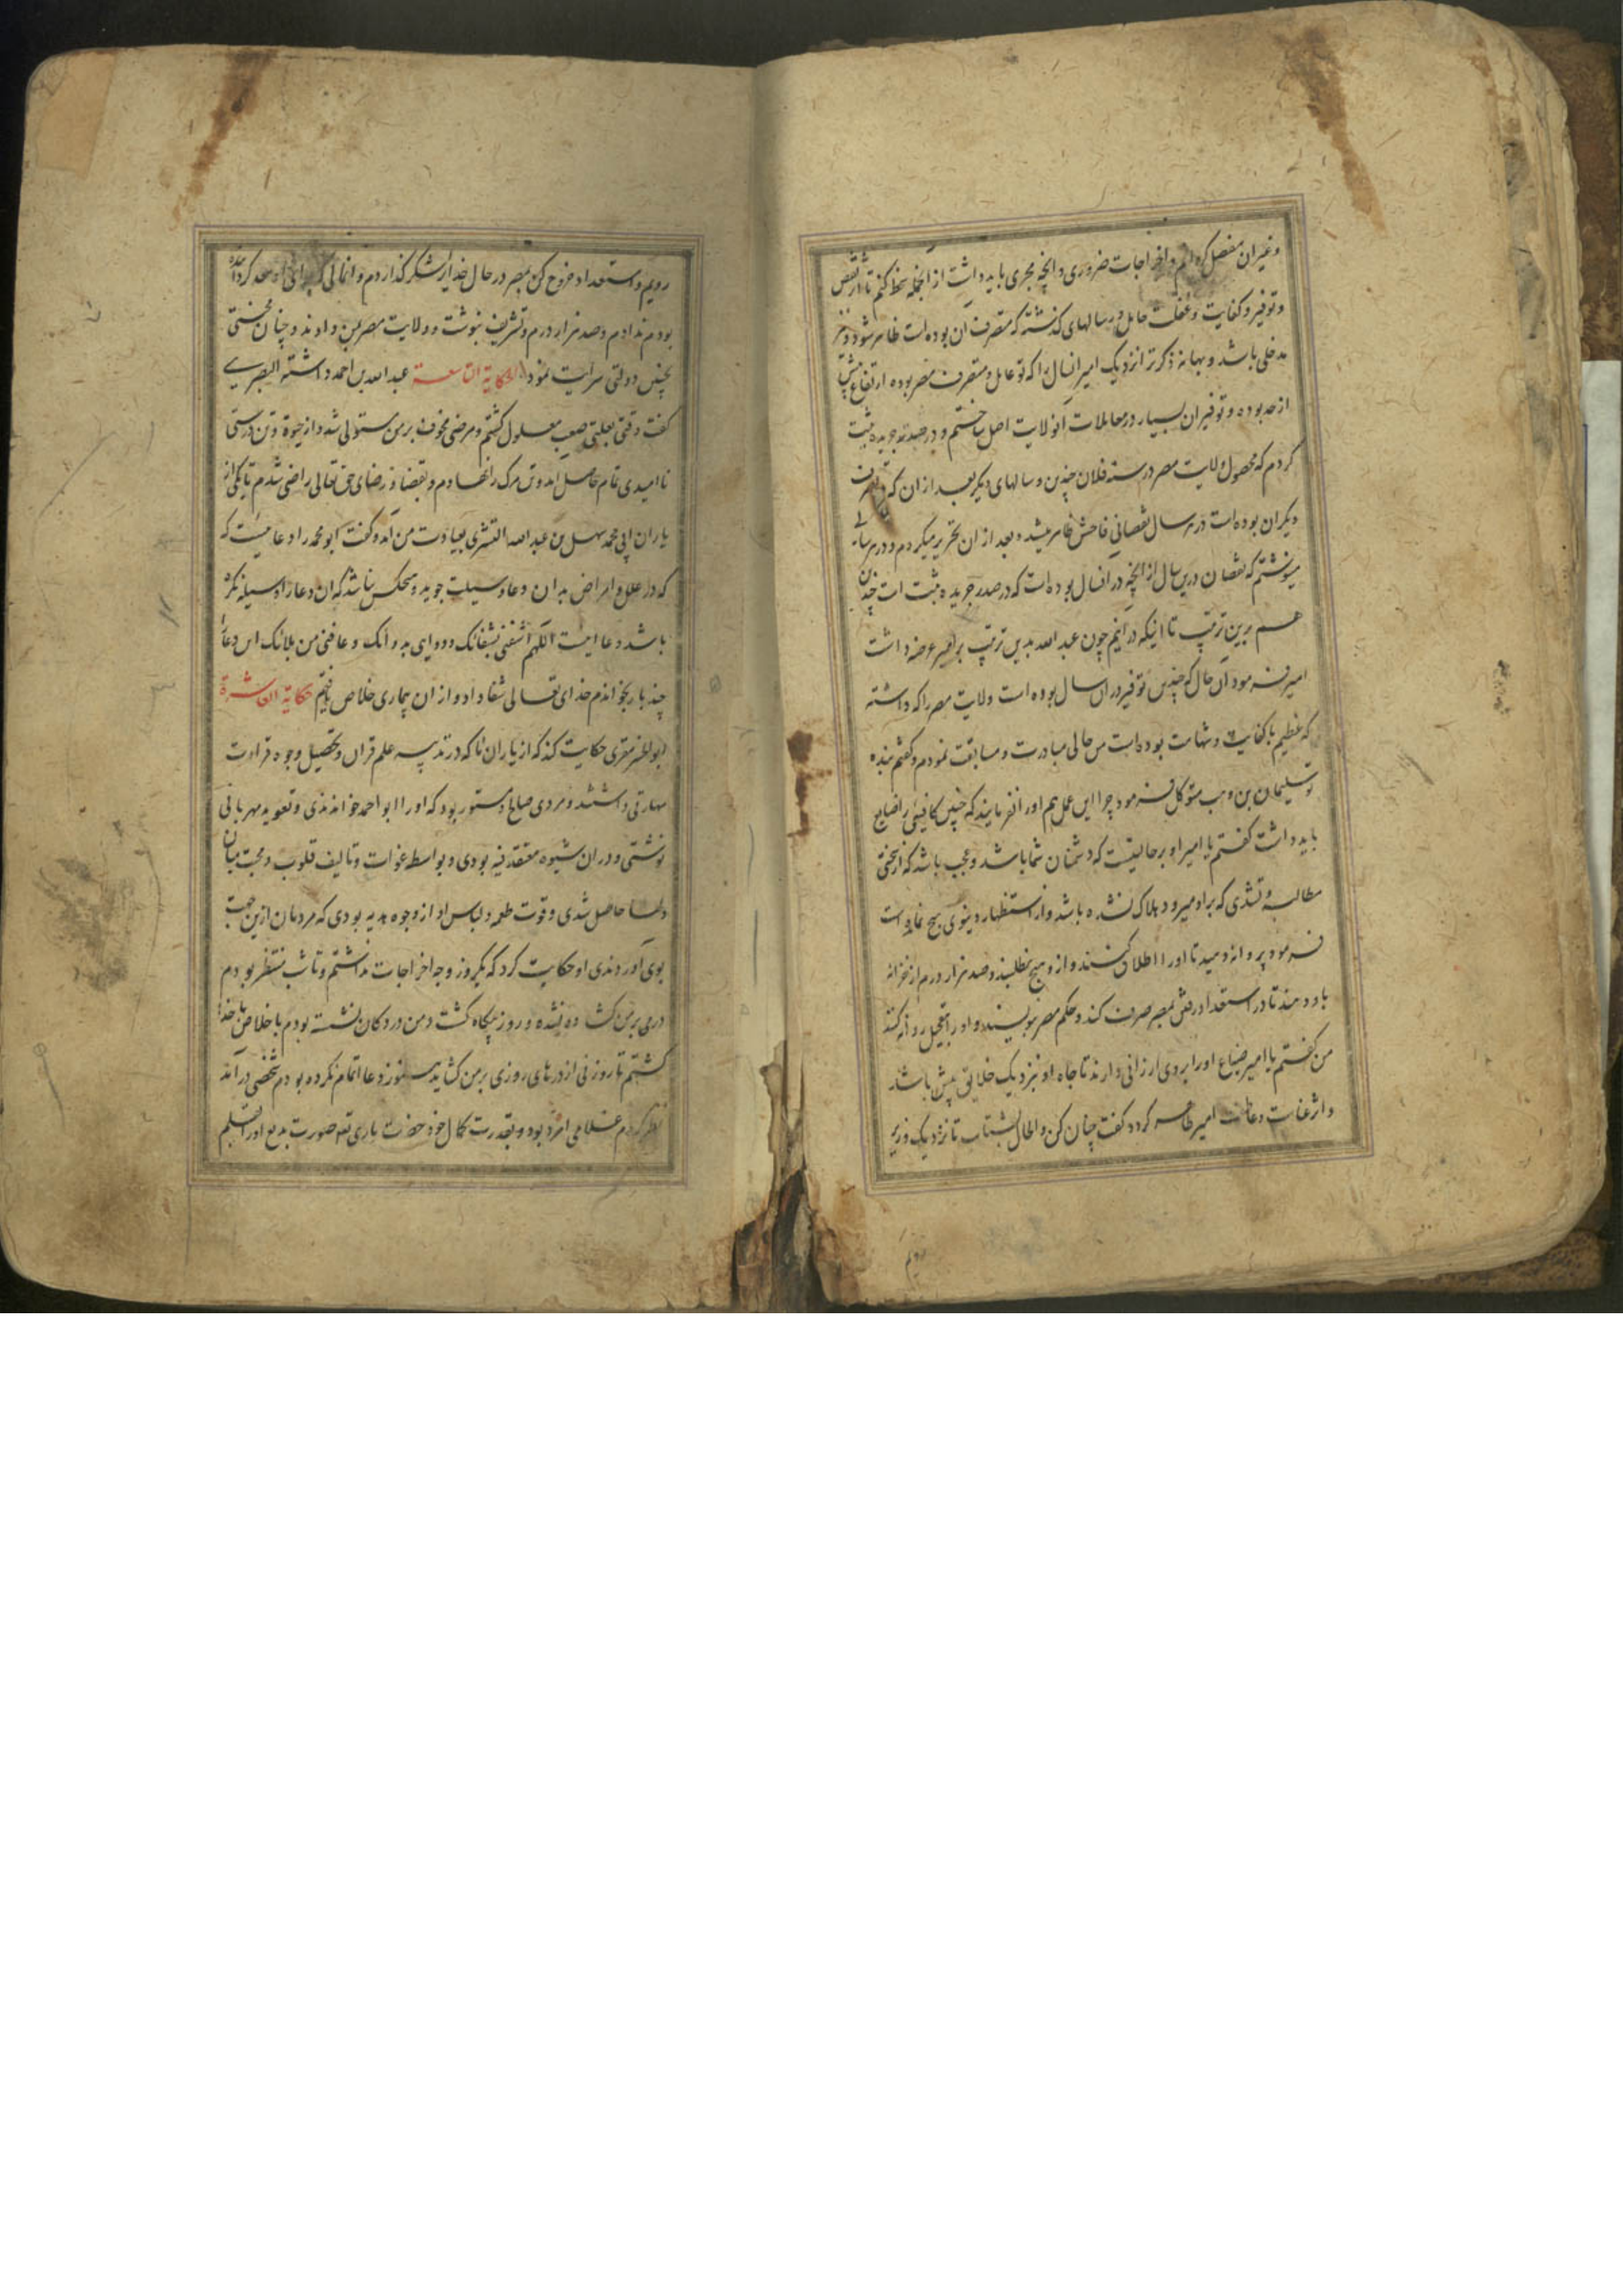 و غیر آن مفصل کرده‌ام و اخراجات ضروری و انچه مجری باید داشت از انجمله خط کنم تا اثر نقص
و توفیر و کفایت و غفلت عامل در سالهای گذشته که متصرف آن بوده است ظاهر شود و نیز
مدخلی باشد و بهانه ذکر تو نزدیک امیر انسال را که تو عامل و متصرف مصر بوده ارتفاع بیش
از حد بوده و توفیر ان بسیار در معاملات آنولایت اصل ساختم و در صدر جریده ثبت
کردم که محصول ولایت مصر در سنه فلان چندین و سالهای دیگر بعد از ان که متصرف
دیگران بوده است در هر سال نقصانی فاحش ظاهر میشد و بعد از ان تحریر میکردم و در هر سالی
مینوشتم که نقصان درین سال از انچه در انسال بوده است که در صدر جریده مثبت است چندین
هم برین ترتیب تا اینکه در انیم چون عبد الله بدین ترتیب بر امیر عرضه داشت
امیر فرمود آن حال که چنین توفیر در ان سال بوده است ولایت مصر را که داشته
که عظیم با کفایت و شهامت بوده است من حالی مبادرت و مسابقت نمودم و گفتم بنده
تو سلیمان بن وهب متوکل فرمود چرا این عمل هم او را نفرمایند که چنین کافیئی را ضایع
باید داشت گفتم یا امیر او بر حالیست که دشمنان شما باشد و عجب باشد که از سختی
مطالبه و تشدی که بر او میرود هلاک نشده باشد و از استظهار دینوی هیچ نمانده است
فرمود پروانه دهید تا او را اطلاق کنند و از و هیچ نطلبند و صد هزار درم از خزانه
باو دهند تا در استعداد رفتن بمصر صرف کند و حکم مصر بنویسند و او را بتعجیل روانه کنند
من گفتم یا امیر ضیاع او را بر وی ارزانی دارند تا جاه او نزدیک خلایق بیش باشد
و اثر عنایت امیر ظاهر گردد گفت چنان کن و الحال بشتاب تا نزدیک وزیر
رویم
رویم و استعداد خروج کن بمصر در حال خدایرا شکر گذاردم و انمالی که برای او معد گردانیده
بودم ندادم و صد هزار درم و تشریف نبوشت و ولایت مصر بمن دادند و چنان محنتی
بچنین دولتی سرایت نمود الحکایة التاسعة عبد الله بن احمد داشته البصری
گفت وقتی بعلتی صعب معلول گشتم و مرضی مخوف بر من مستولی شد و از حیوة و تن درستی
ناامیدی تمام حاصل آمد و تن مرگ را نهادم و بقضا و رضای حق تعالی راضی شدم تا یکی از
یاران ابی محمد سهل بن عبد الله التستری بعیادت من آمد و گفت ابو محمد را دعا ئیست که
که در علل و امراض بدان دعا وسیلت جوید و هیچکس نباشد که ان دعا را وسیله نکرده
باشد دعا اینست اللهم اشفنی بشفائک و دوائی بدوائک و عافنی من بلائک این دعا را
چند بار بخواندم خدای تعالی شفا داد و از ان بیماری خلاص یافتم حکایة العاشرة
ابو الحسن مقری حکایت کند که از یاران ما که در تدریس علم قران و تحصیل وجوه قراءت
مهارتی داشتند و مردی صالح و مستور بود که او را ابو احمد خواندندی و تعوید مهربانی
نوشتی و در ان شیوه معتقد فیه بودی و بواسطه عوذات و تالیف قلوب و محبت میان
دلها حاصل شدی و قوت طعمه و لباس او از وجوه هدیه بودی که مردمان ازین جهت
بوی آوردندی او حکایت کرد که یکروز وجه اخراجات نداشتم و تا شب منتظر بودم
دری بر من گشاده نشده و روز بیگاه گشت و من در دکان نشسته بودم باخلاص با خدا
گشتم تا روزنی از درهای روزی بر من گشاید هنوز دعا اتمام نکرده بودم شخصی درآمد
نظر کردم غلامی امرد بود و بقدرت کمال خود حضرت باری تعه صورت بدیع او را بقلم